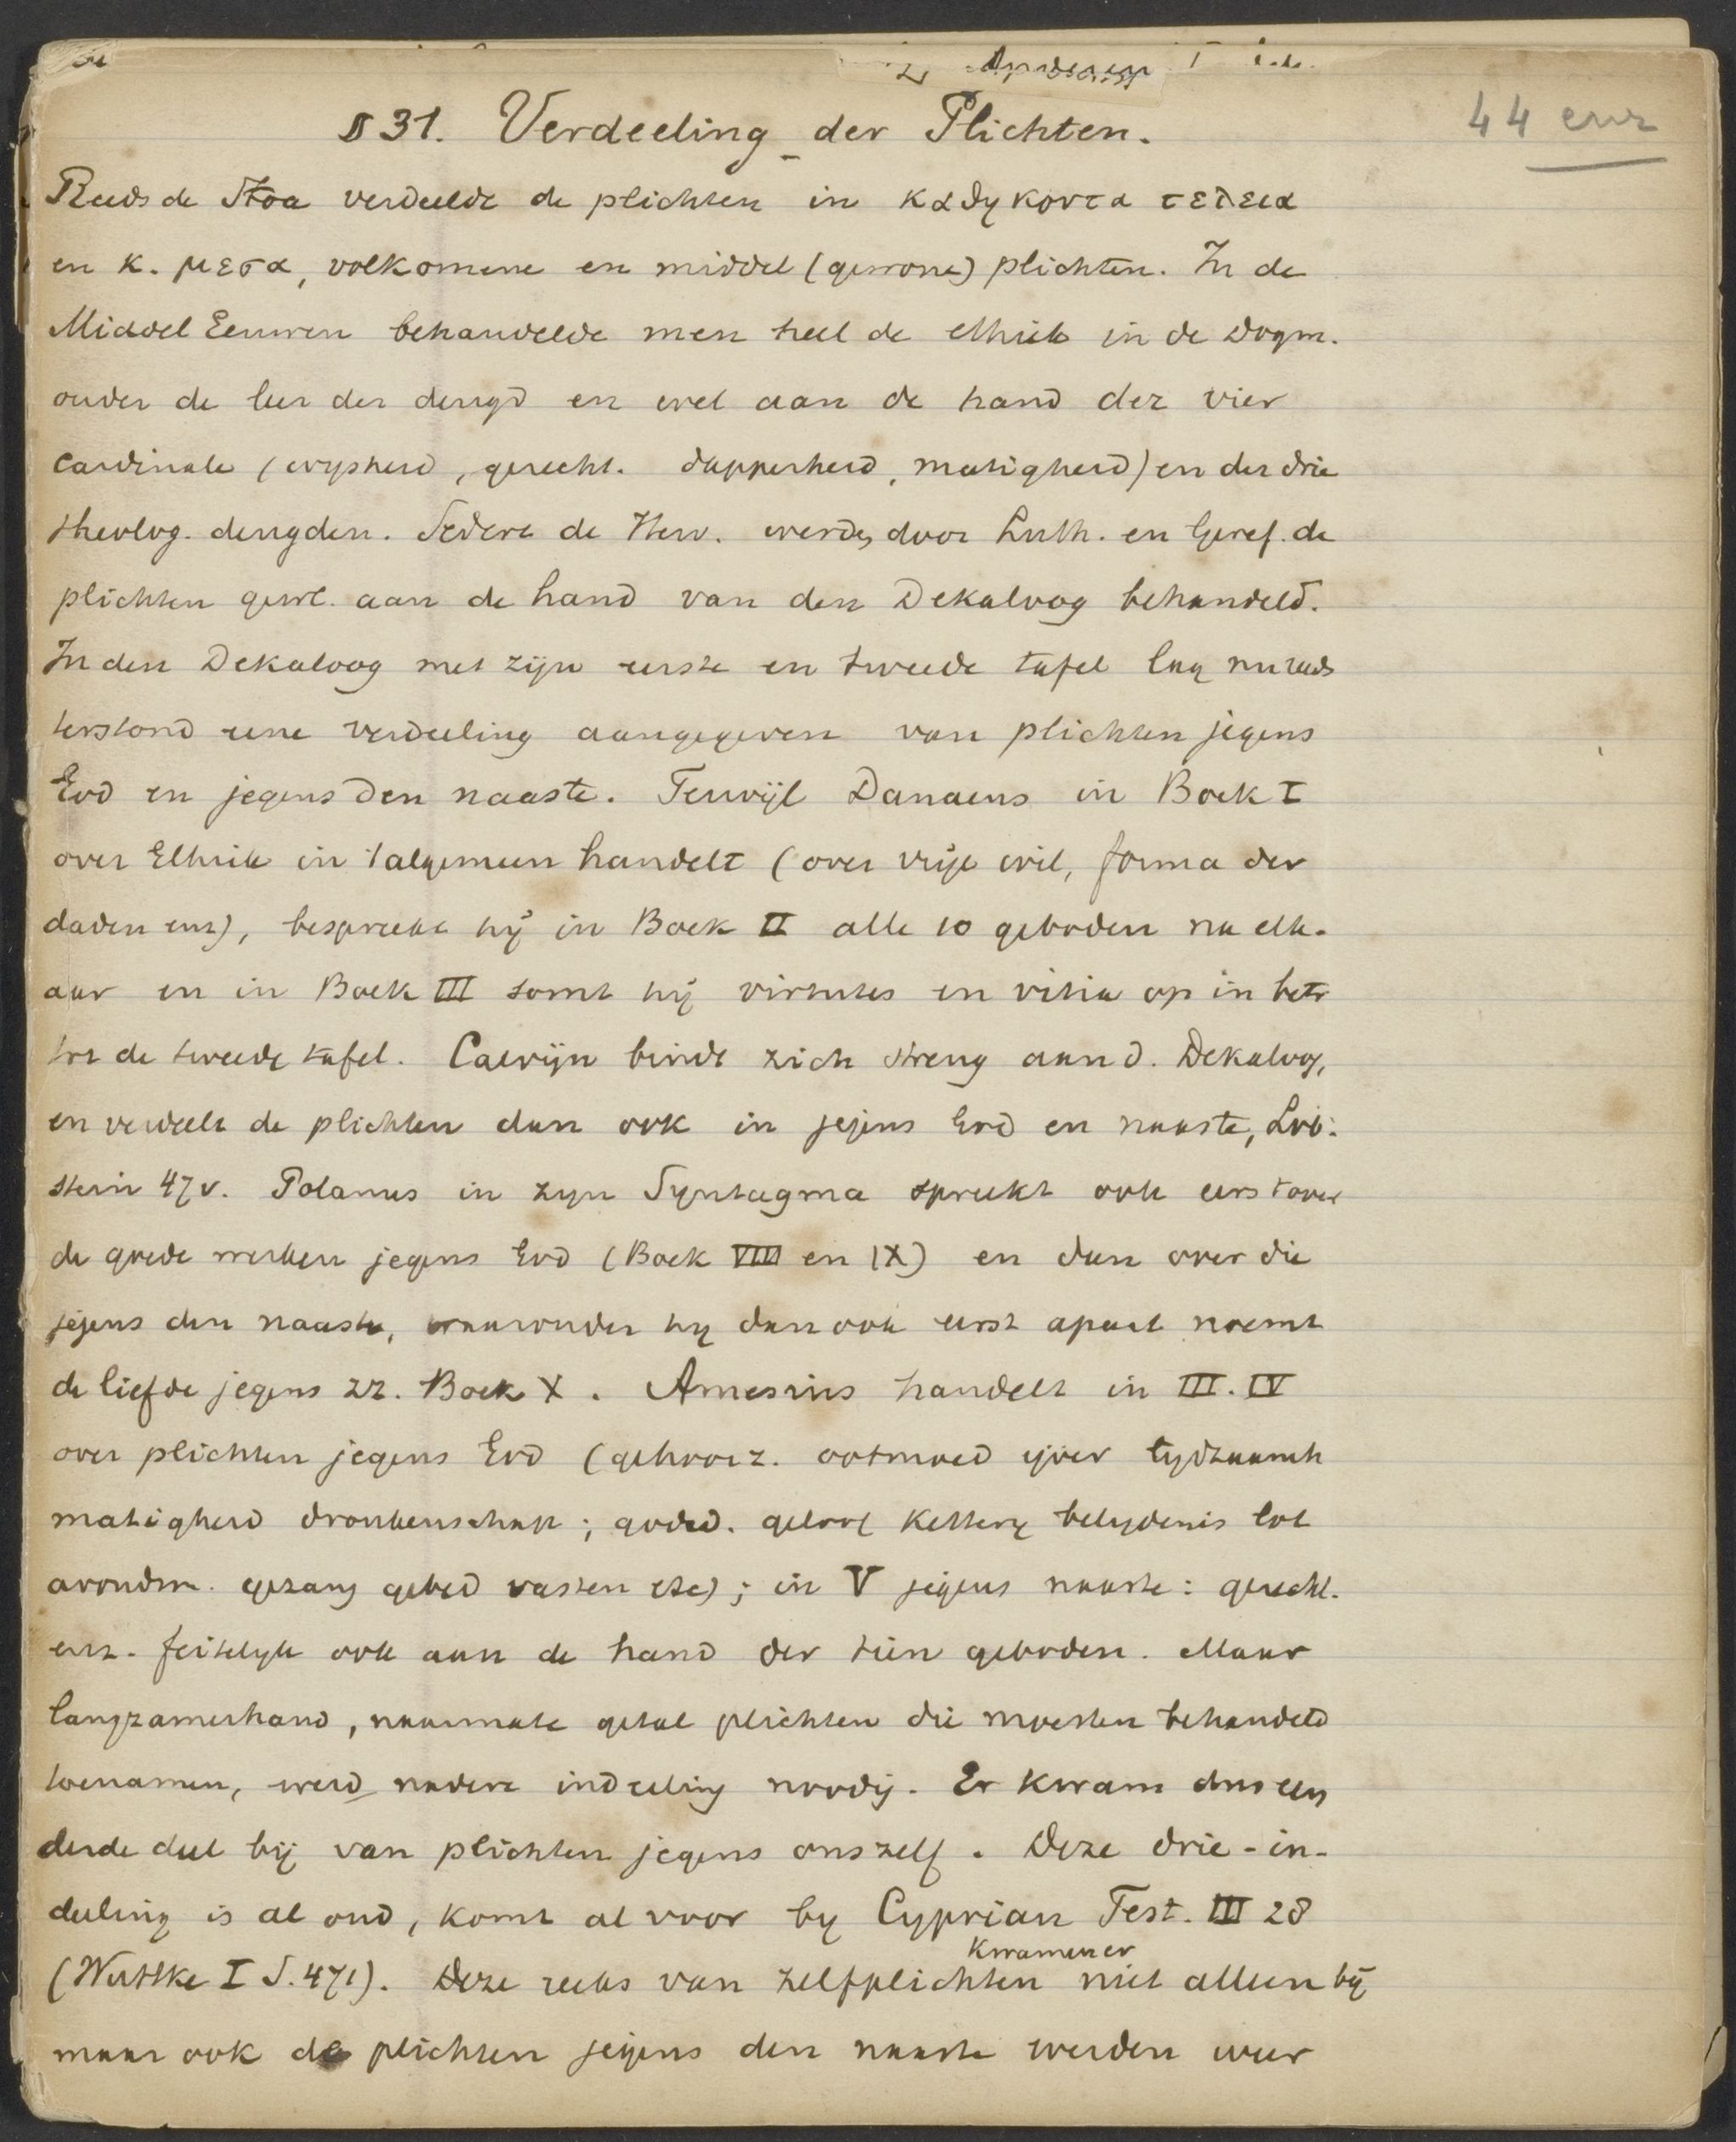 44 env
§ 31. Verdeeling der Plichten.
Reeds de Stoa verdeelde de plichten in καθηκοντα τελεια
en κ. μεσα, volkomene en middel (gewone) plichten. In de
Middel Eeuwen behandelde men heel de ethiek in de Dogm.
onder de leer der deugd en wel aan de hand der vier
cardinale (wysheid, gerecht. dapperheid, matigheid) en der drie
theolog. deugden. Sedert de Herv. werden door Luth. en Geref. de
plichten gewl. aan de hand van den Dekaloog behandeld.
In den Dekaloog met zijn eerste en tweede tafel lag nu reeds
terstond eene verdeeling aangegeven van plichten jegens
God en jegens den naaste. Terwijl Danaeus in Boek I
over Ethiek in 't algemeen handelt (over vrije wil, forma der
daden enz), bespreekt hij in Boek II alle 10 geboden na elk-
aar en in Boek III somt hij virtutes en vitia op in betr
tot de tweede tafel. Calvijn bindt zich streng aan d. Dekaloog,
en verdeelt de plichten dan ook in jegens God en naaste, Lob-
stein 47v. Polanus in zyn Syntagma spreekt ook eerst over
de goede werken jegens God (Boek VIII en IX) en dan over die
jegens den naaste, waaronder hy dan ook eerst apart noemt
de liefde jegens zz. Boek X. Amesius handelt in III. IV
over plichten jegens God (gehoorz. ootmoed ijver tydzaamh
matigheid dronkenschap; godsd. geloof kettery belydenis lot
avondm. gezang gebed vasten etc); in V jegens naaste: gerecht.
enz. feitelyk ook aan de hand der tien geboden. Maar
langzamerhand, naarmate getal plichten die moesten behandeld
toenamen, werd nadere indeeling noodig. Er kwam dus een
derde deel bij van plichten jegens onszelf. Deze drie-in-
deeling is al oud, komt al voor by Cyprian Test. III 28
(Wuttke I S. 471). Deze reeks van zelfplichten kwamen er niet alleen bij
maar ook de plichten jegens den naaste werden weer